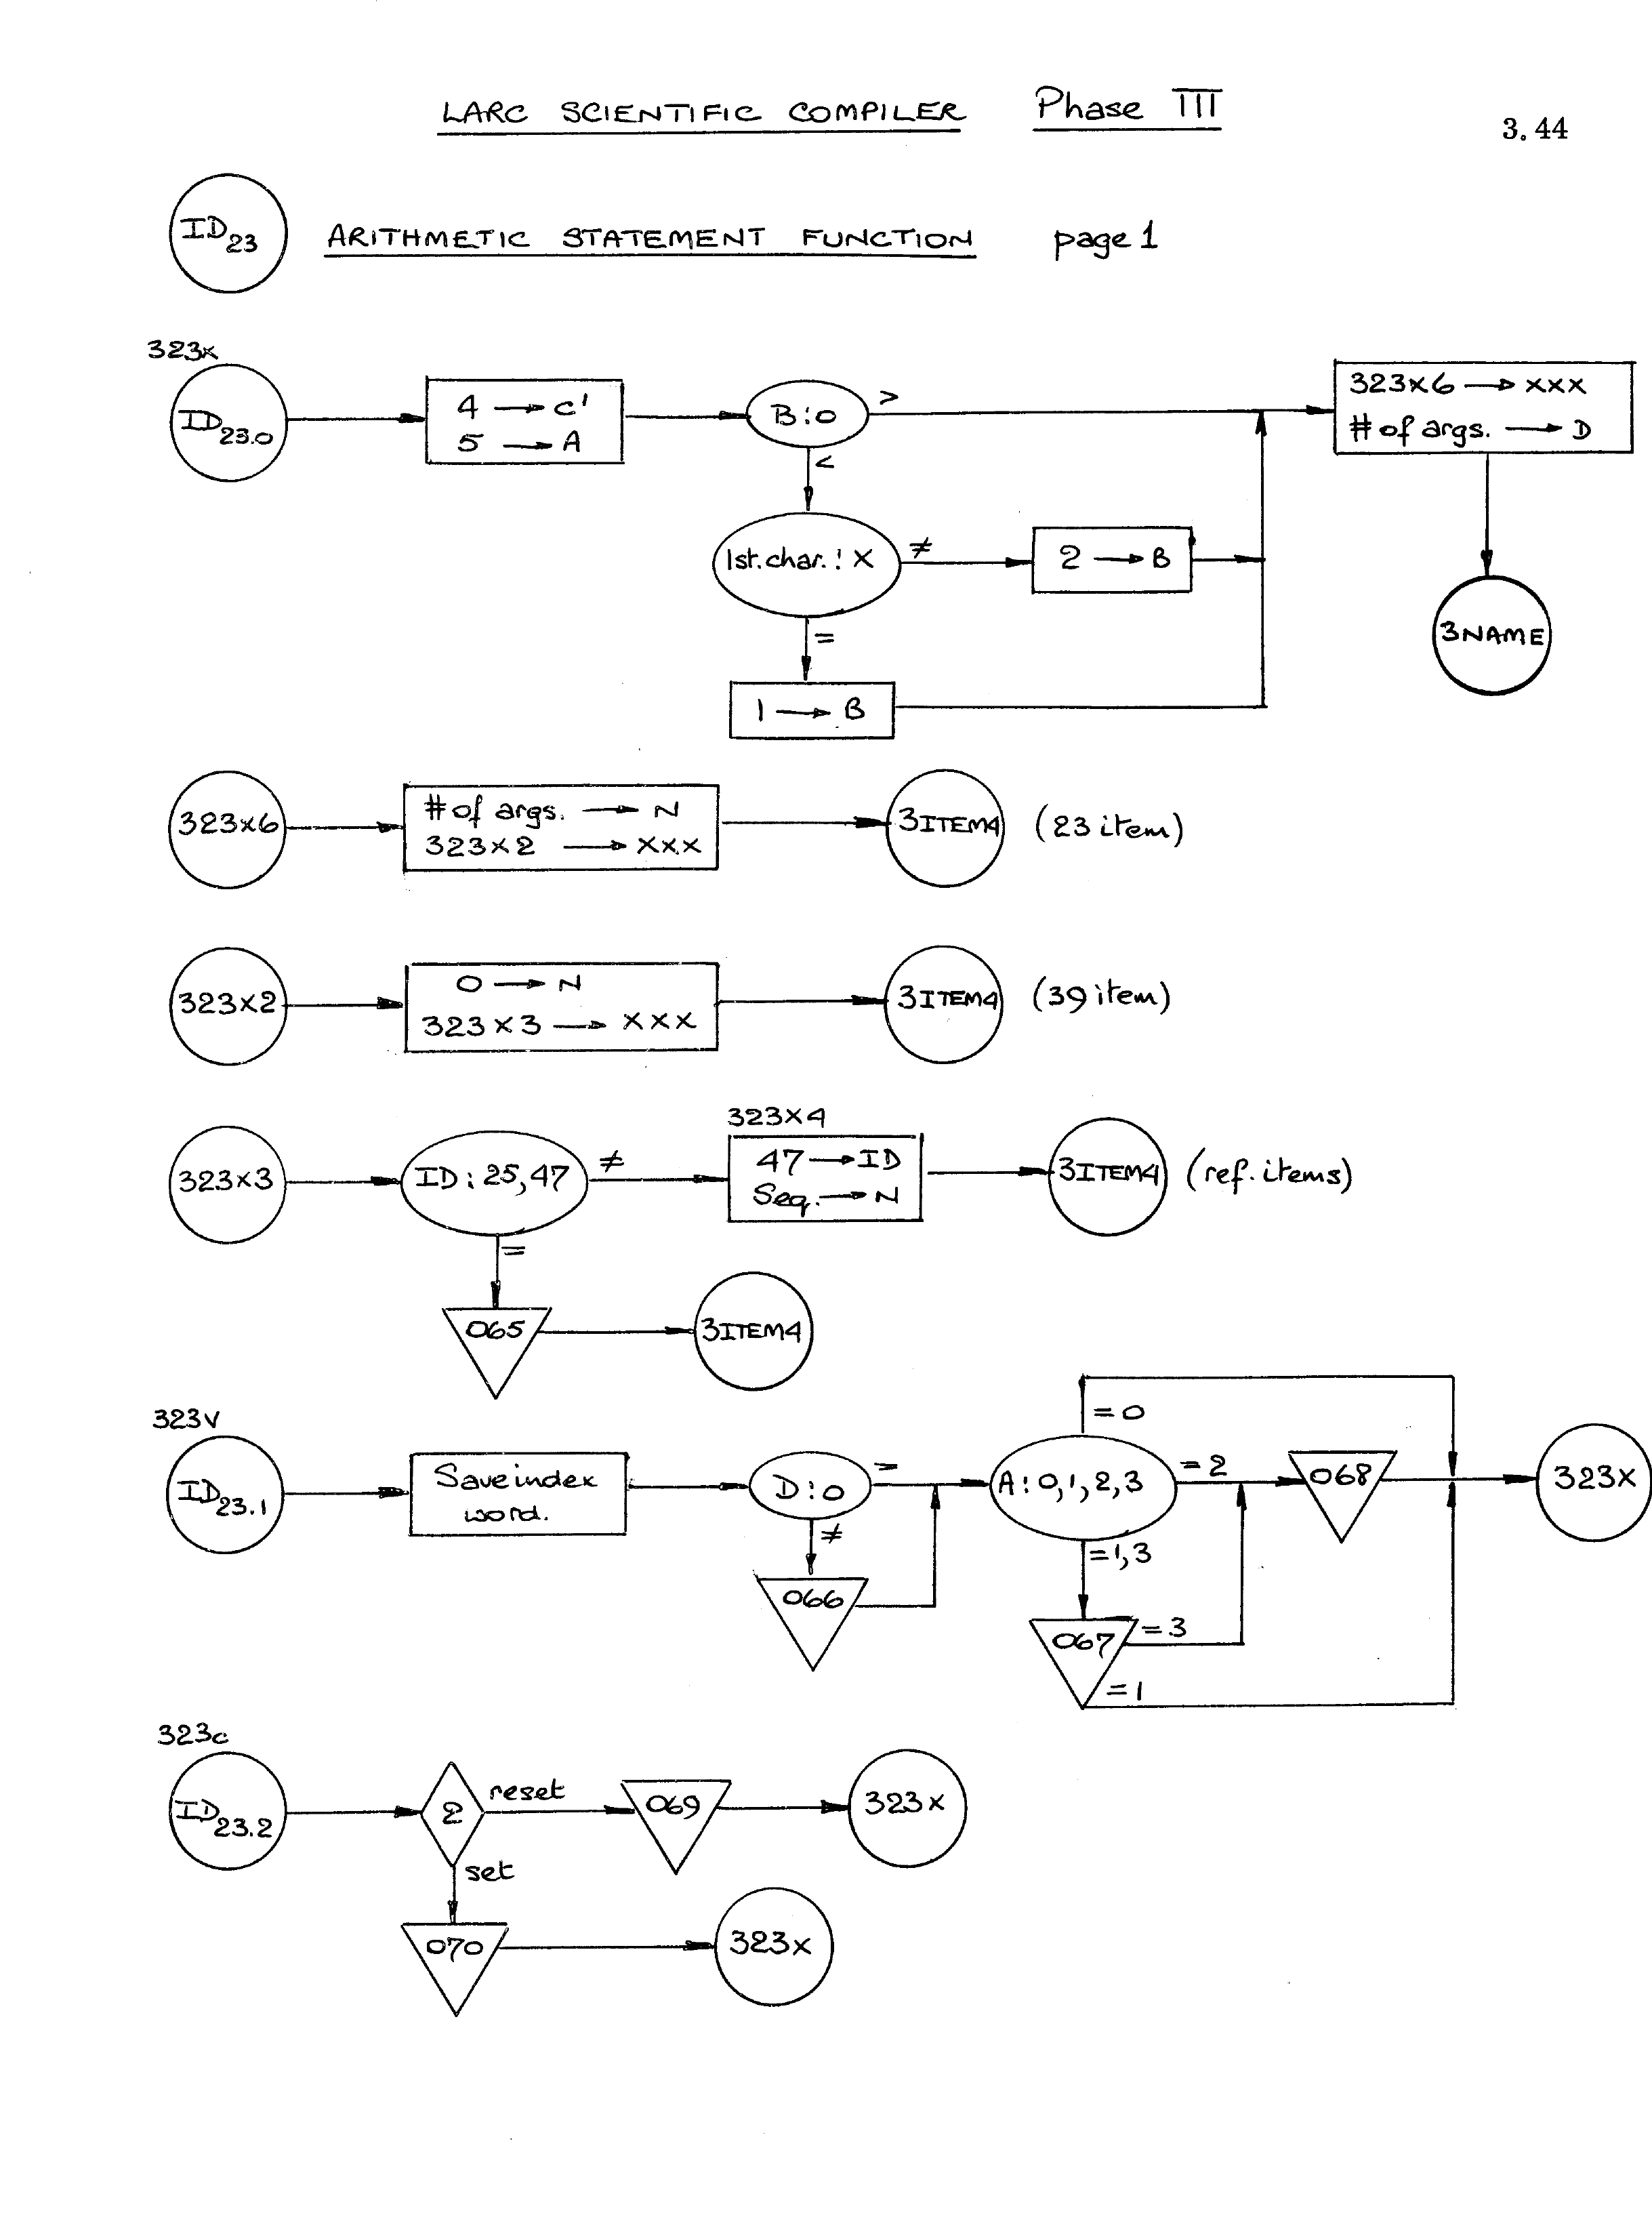 LARC SCIENTIFIC COMPILER Phase III
3.44
ID23 ARITHMETIC STATEMENT FUNCTION page 1
323x
ID23.0
4 → C'
5 → A
B:0
>
<
323x6 → xxx
# of args. → D
1st. char.: X
≠
2 → B
=
1 → B
3NAME
323x6
# of args. → N
323x2 → xxx
3ITEM4
(23 item)
323x2
0 → N
323x3 → xxx
3ITEM4
(39 item)
323x3
ID: 25,47
≠
=
323x4
47 → ID
Seq. → N
3ITEM4
(ref. items)
065
3ITEM4
323v
ID23.1
Save index
word.
D:0
=
≠
066
A: 0,1,2,3
= 0
= 2
= 1,3
067
= 3
= 1
068
323x
323c
ID23.2
2
reset
069
323x
set
070
323x